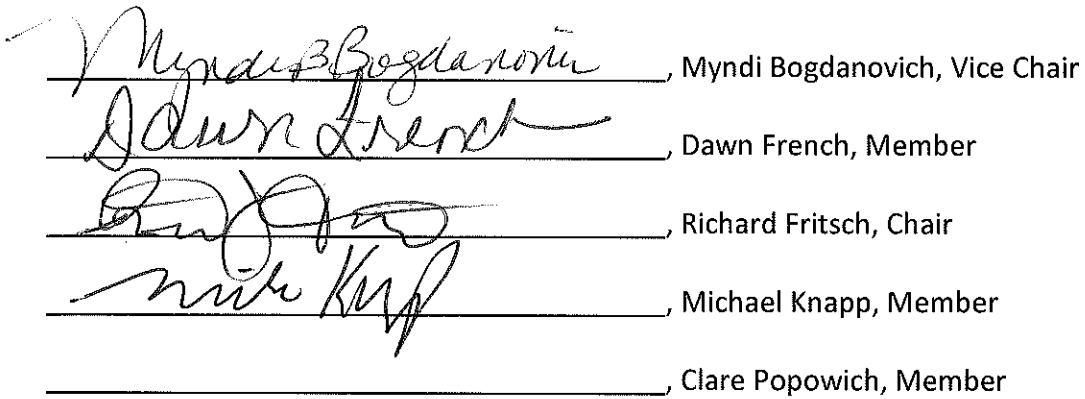 Myndi B Bogdanovich, Myndi Bogdanovich, Vice Chair
Dawn French, Dawn French, Member
, Richard Fritsch, Chair
Mike Knapp, Michael Knapp, Member
, Clare Popowich, Member